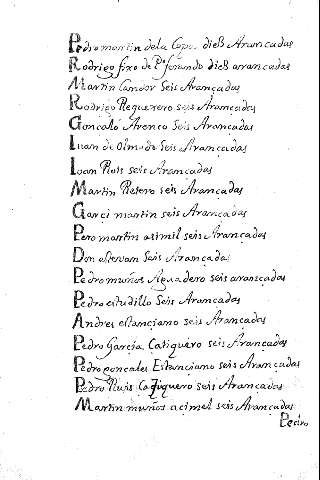 Pedro martin dela Copa dieß Arancadas
Rodrigo fixo de P.º ferando dieß arancadas
Martin Candor Seis Arançadas
Rodrigo Requexero seis Arançades
Goncaló Arenco Seis Arançadas
Iuan de Olmedo Seis Arançadas
Ioan Ruis seis Arancadas
Martin Pletero seis Arançadas
Garci martin seis Arançadas
Pero martin acimil seis Arançadas
Don estevam Seis Arançadas
Pedro muños Aguadero seis aranscadas
Pedro estudillo Seis Arancadas
Andres estanciamo seis Arançadas
Pedro Garcia Catiquero seis Arançadas
Pedro gonçales Estanciano seis Arançadas
Pedro Ruis Caziquero seis Arançadas
Martin muños acimel seis Arançadas
Pedro